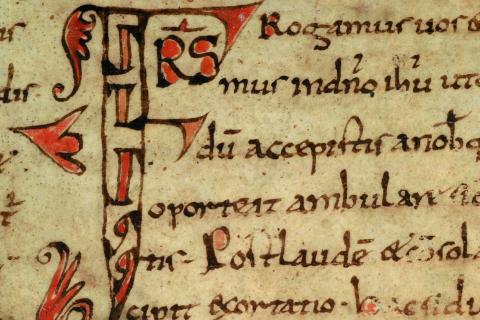 FRS Rogamus uos &
mus in dño ihu ut
dū accepistis a nob q
oporteat ambulare
tis · Post laudē & csola
cipit exortatio ·